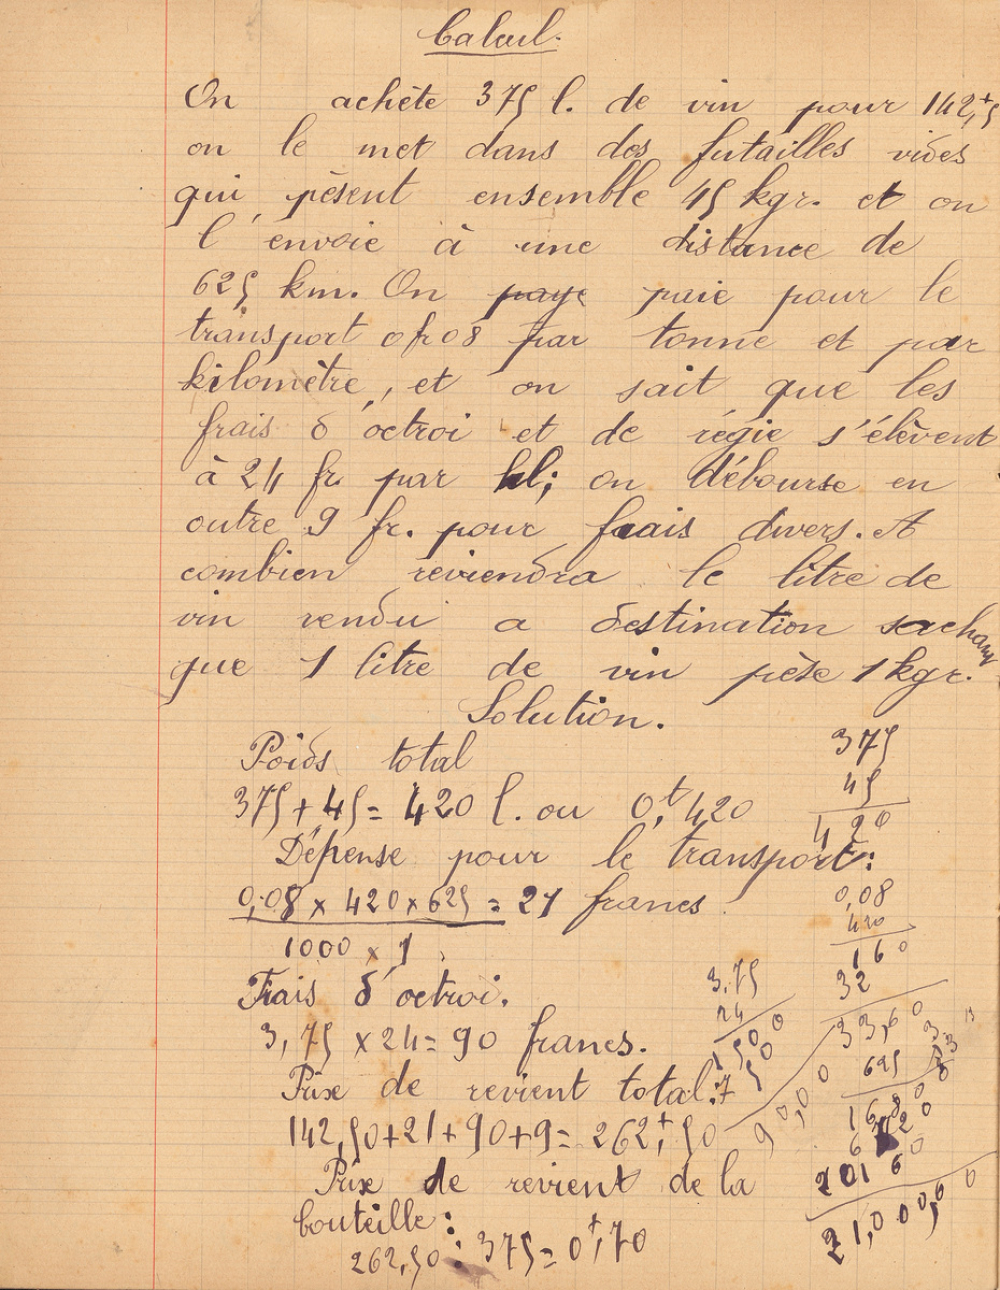 Calcul.
On achète 375 l. de vin pour 142,f5
on le met dans des futailles vides
qui pèsent ensemble 45 kgr. et on
l'envoie à une distance de
625 km. On paye paie pour le
transport 0fr08 par tonne et par
kilomètre, et on sait que les
frais d'octroi et de régie s'élèvent
à 24 fr par hl; on débourse en
outre 9 fr. pour frais divers. A
combien reviendra le litre de
vin rendu a destination sachant
que 1 litre de vin pèse 1 kgr.
Solution.
Poids total
375 + 45 = 420 l. ou 0,t420
375
45
420
Dépense pour le transport:
0,08 x 420 x 625 = 21 francs
1000 x 1
0,08
420
160
32
33,60
625
Frais d'octroi.
3,75 x 24 = 90 francs.
3,75
24
1500
750
90,00
Prix de revient total:
142,50 + 21 + 90 + 9 = 262,f50
16800
6720
20160
21,000,00
Prix de revient de la
bouteille:
262,50 : 375 = 0,f70